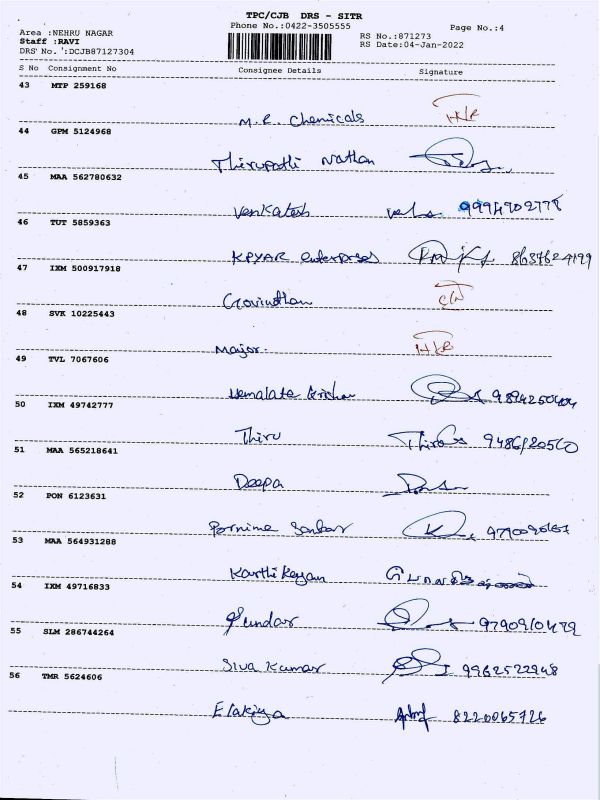 TPC/CJB DRS - SITR
Phone No.:0422-3505555
Page No.:4
Area :NEHRU NAGAR
Staff :RAVI
DRS' No. ':DCJB87127304
RS No.:871273
RS Date:04-Jan-2022
S No Consignment No Consignee Details Signature
43 MTP 259168
M.R. Chemicals
44 GPM 5124968
Thirupathi Nathan
45 MAA 562780632
Venkatesh 9994902778
46 TUT 5859363
KPYAR enterprises 8637624199
47 IXM 500917918
Govindhan
48 SVK 10225443
Major.
49 TVL 7067606
Hemalata Krishan 9894250404
50 IXM 49742777
Thiru 9486120560
51 MAA 565218641
Deepa
52 PON 6123631
Pornima Sankar
53 MAA 564931288
Karthikeyan
54 IXM 49716833
Sundar 9790910479
55 SLM 286744264
Siva Kumar 9962522948
56 TMR 5624606
Elakiya 8220065726